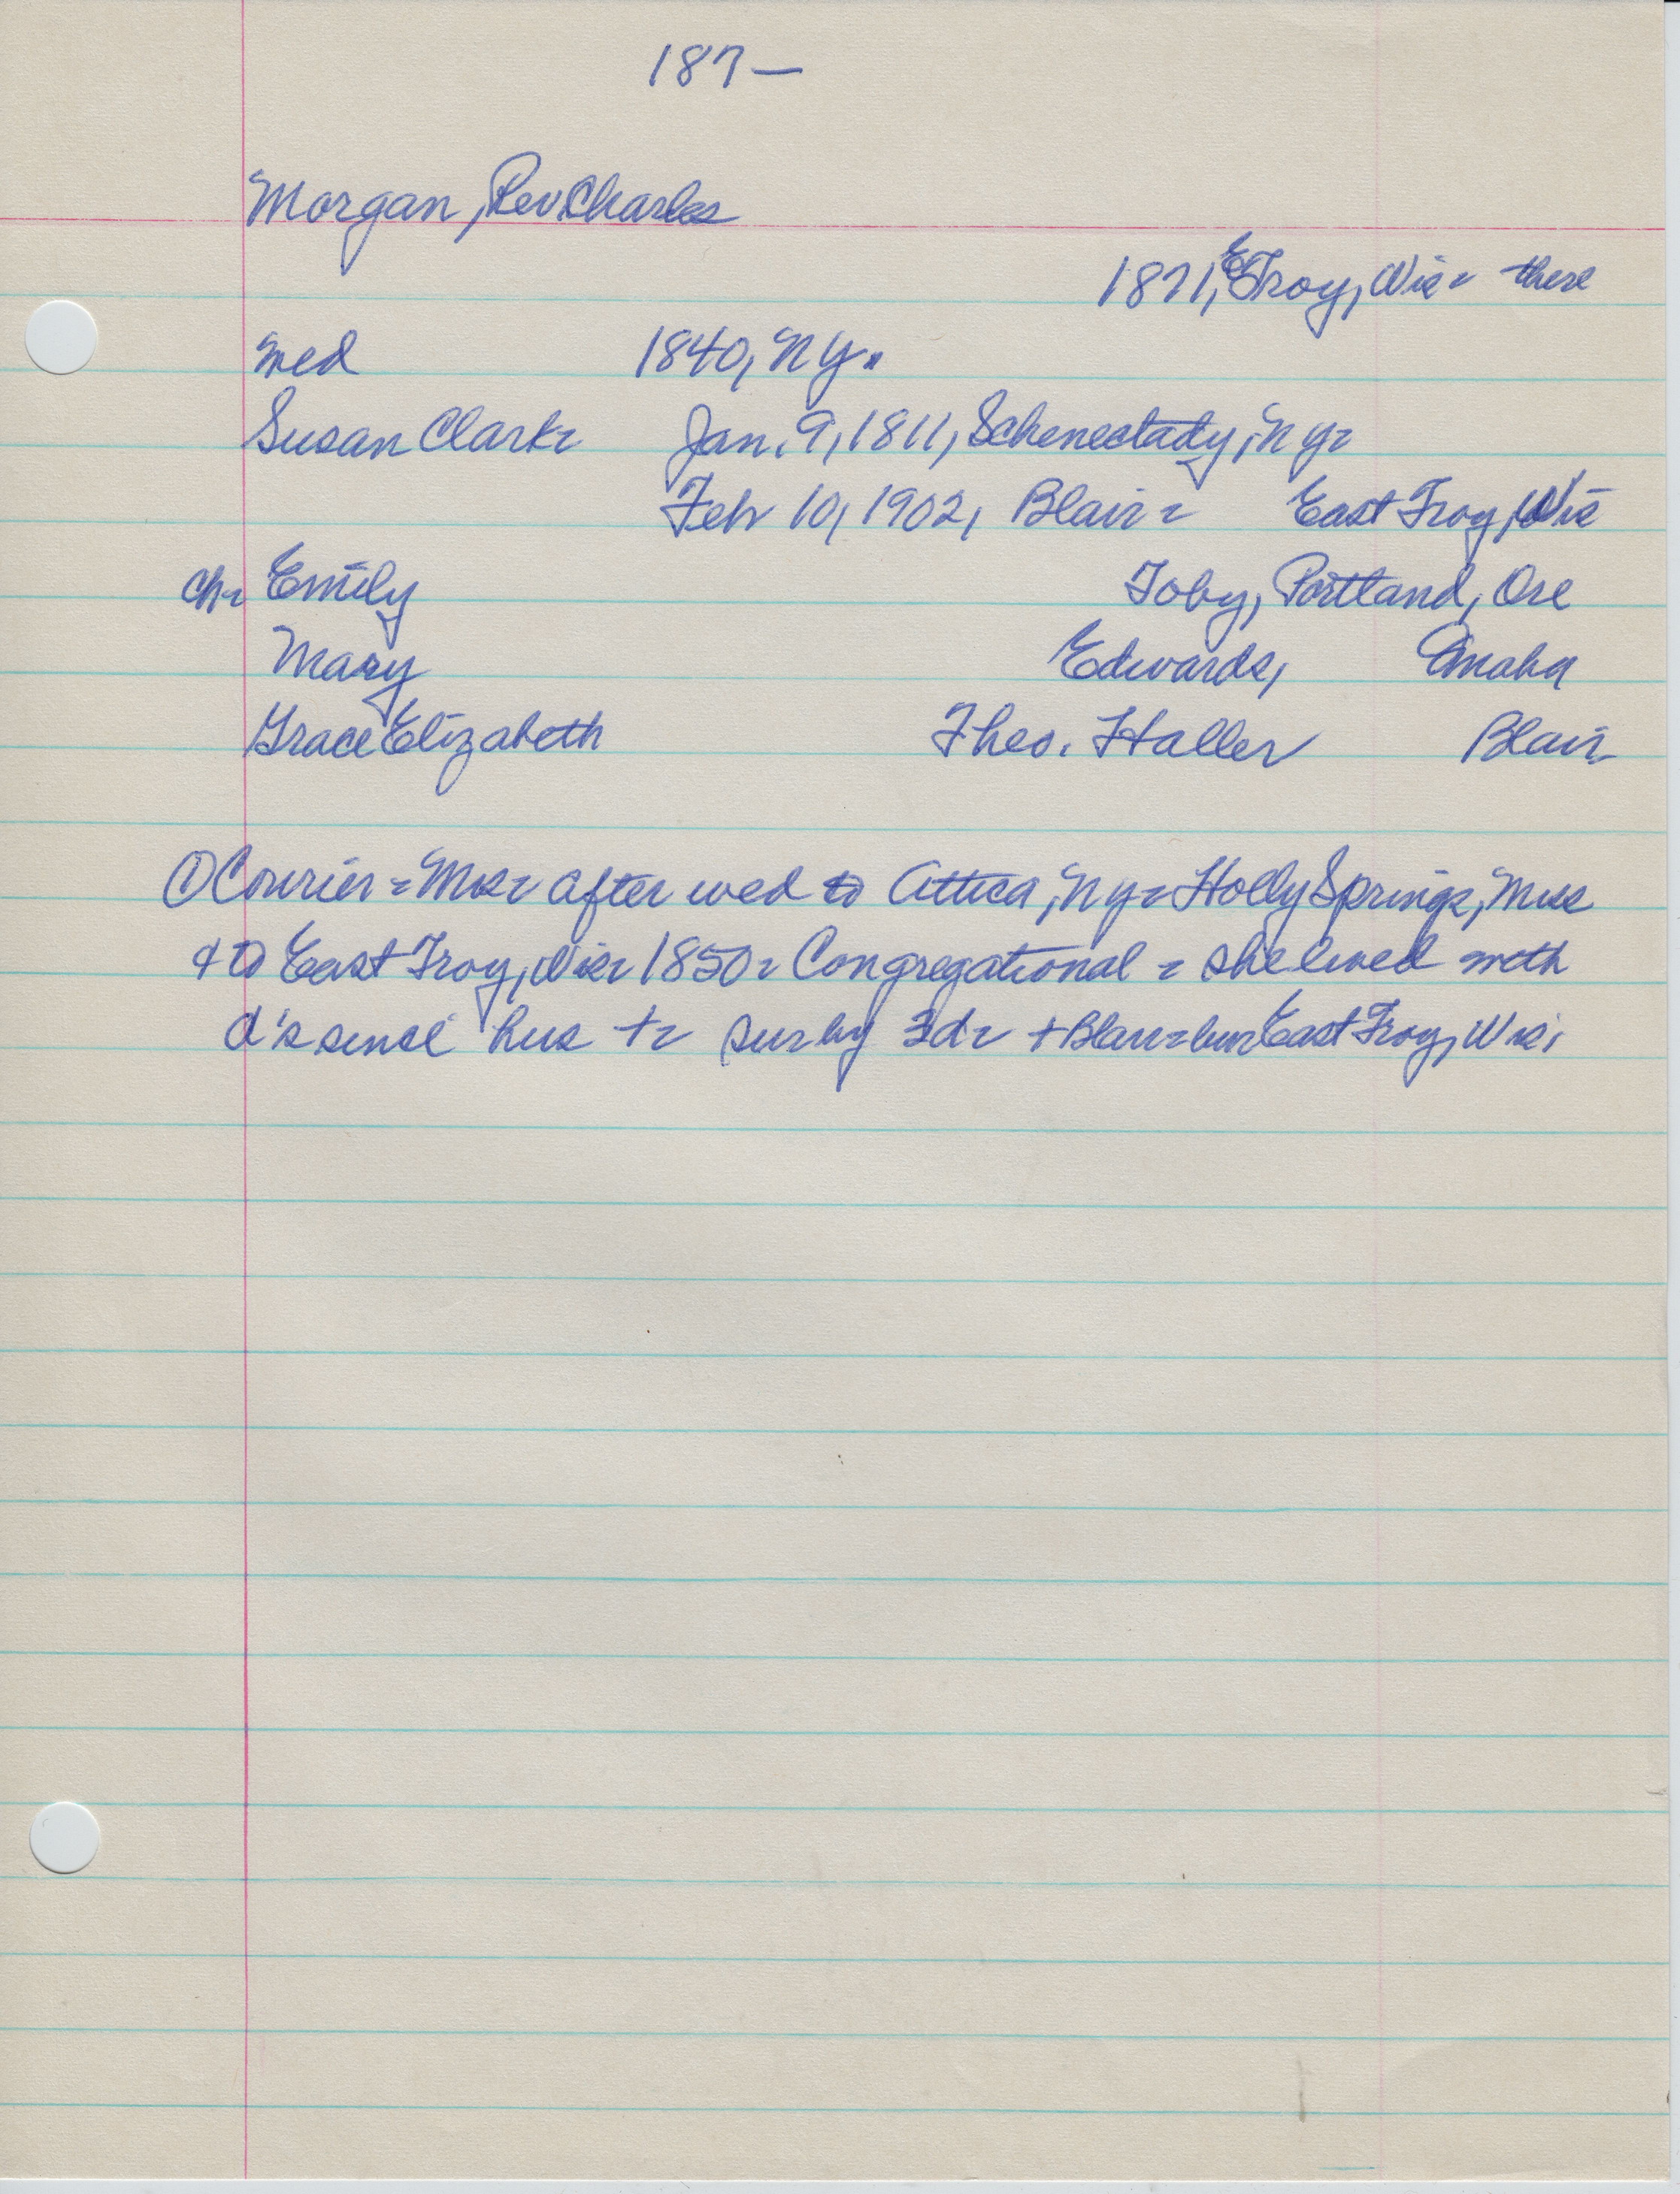 187—
Morgan, Rev Charles
1871, E Troy, Wis - there
wed 1840, N Y.
Susan Clark - Jan. 9, 1811, Schenectady, N Y -
Feb 10, 1902, Blair - East Troy, Wis
ch - Emily Toby, Portland, Ore
Mary Edwards, Omaha
Grace Elizabeth Theo. Haller Blair
① Courier = Mrs - after wed to Attica, N Y - Holly Springs, Miss
& to East Troy, Wis - 1850 - Congregational - she lived with
d's since hus + - sur by 3d - + Blair - bur East Troy, Wis.